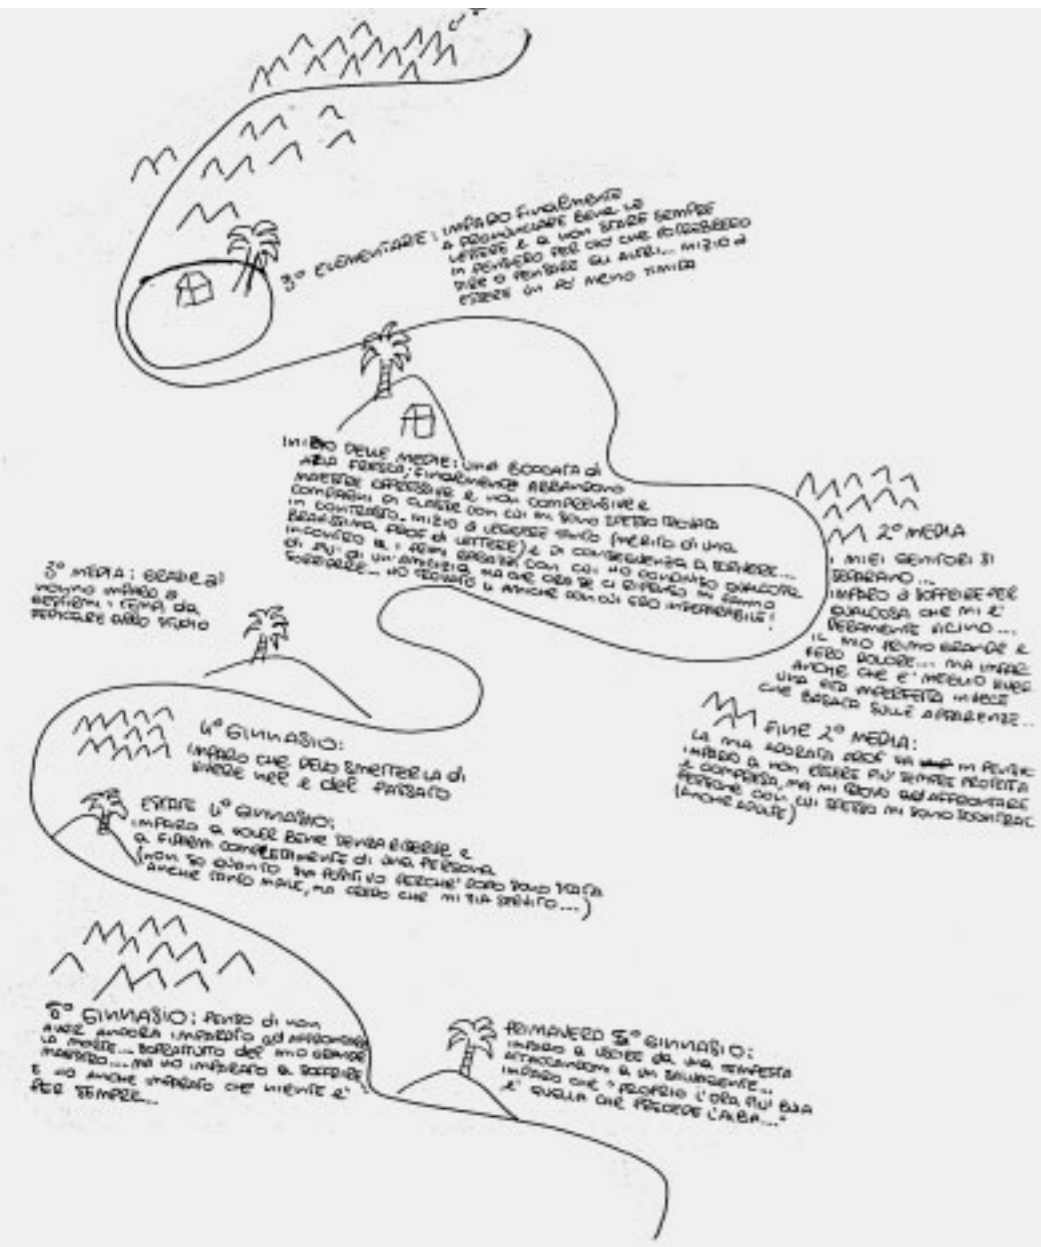 3° ELEMENTARE: IMPARO FINALMENTE
A PRONUNCIARE BENE LE
LETTERE E A NON STARE SEMPRE
IN PENSIERO PER CIO' CHE POTREBBERO
DIRE O PENSARE GLI ALTRI... INIZIO A
ESSERE UN PO' MENO TIMIDA
INIZIO DELLE MEDIE: UNA BOCCATA di
ARIA FRESCA; FINALMENTE ABBANDONO
MAESTRE OPPRESSIVE E NON COMPRENSIVE E
COMPAGNI DI CLASSE CON CUI MI SONO SPESSO TROVATA
IN CONTRASTO. INIZIO A LEGGERE TANTO (MERITO DI UNA
BRAVISSIMA PROF DI LETTERE) E DI CONSEGUENZA A SCRIVERE...
INCONTRO LE I PRIMI RAGAZZI CON CUI HO CONDIVISO QUALCOSA
DI PIU' DI UN'AMICIZIA, MA CHE ORA SE CI RIPENSO MI FANNO
SORRIDERE... HO TROVATO 4 AMICHE CON CUI ERO INSEPARABILE!
2° MEDIA
I MIEI GENITORI SI
SEPARANO...
IMPARO A SOFFRIRE PER
QUALCOSA CHE MI E'
VERAMENTE VICINO...
IL MIO PRIMO GRANDE E
VERO DOLORE... MA IMPAR
ANCHE CHE E' MEGLIO VIVER
UNA VITA IMPERFETTA INVECE
CHE BASATA SULLE APPARENZE...
FINE 2° MEDIA:
LA MIA ADORATA PROF VA IN PENSIO
IMPARO A NON ESSERE PIU' SEMPRE PROTETTA
E COMPRESA, MA MI TROVO AD AFFRONTARE
PERSONE CON CUI SPESSO MI SONO SCONTRAT
(ANCHE ADULTE)
3° MEDIA: GRAZIE al
NONNO IMPARO A
GESTIRMI I TEMPI DA
DEDICARE ALLO STUDIO
4° GINNASIO:
IMPARO CHE DEVO SMETTERLA di
VIVERE NEL E del PASSATO
ESTATE 4° GINNASIO:
IMPARO A VOLER BENE SENZA RISERVE E
A FIDARMI COMPLETAMENTE di UNA PERSONA
(NON SO QUANTO SIA POSITIVO PERCHE' DOPO SONO STATA
ANCHE TANTO MALE, MA CREDO CHE MI SIA SERVITO...)
5° GINNASIO: PENSO di NON
AVER ANCORA IMPARATO ad AFFRONTARE
LA MORTE... SOPRATTUTTO del MIO GRANDE
MAESTRO... MA HO IMPARATO A SOFFRIRE
E HO ANCHE IMPARATO CHE NIENTE E'
PER SEMPRE...
PRIMAVERA 5° GINNASIO:
IMPARO A USCIRE DA UNA TEMPESTA
ATTACCANDOMI A UN SALVAGENTE...
IMPARO CHE "PROPRIO L'ORA PIU' BUIA
E' QUELLA CHE PRECEDE L'ALBA..."